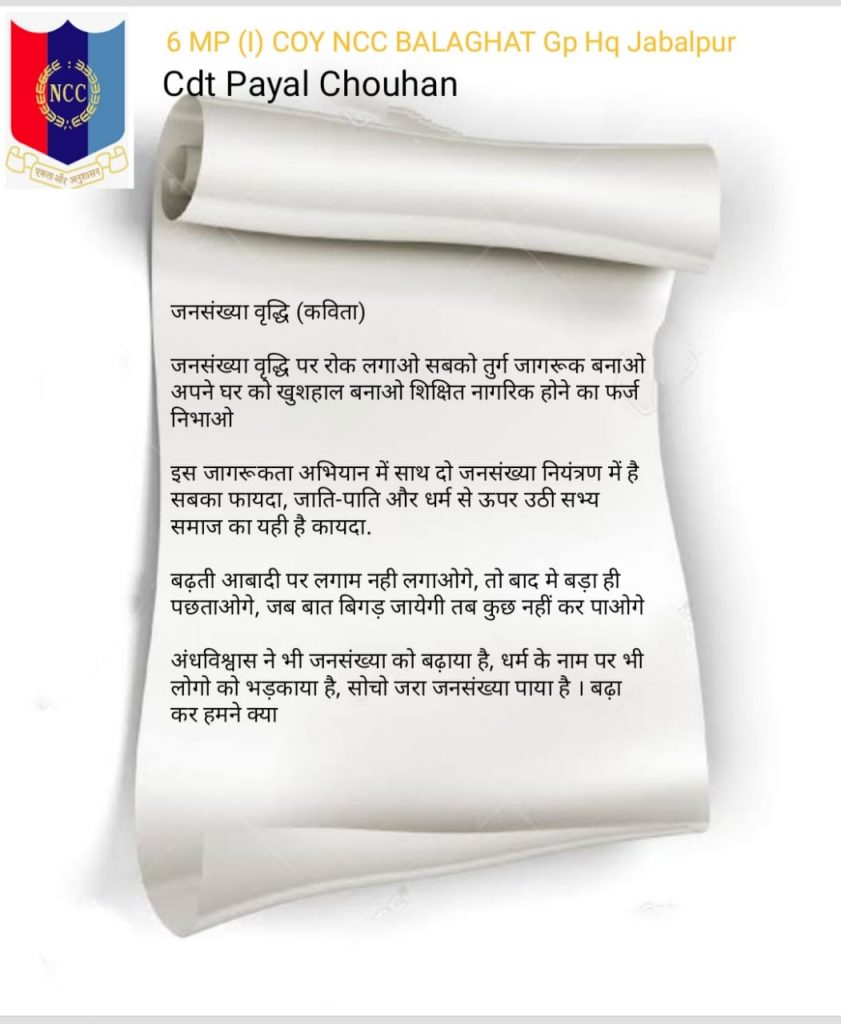 6 MP (I) COY NCC BALAGHAT Gp Hq Jabalpur
Cdt Payal Chouhan
NCC
एकता और अनुशासन
जनसंख्या वृद्धि (कविता)
जनसंख्या वृद्धि पर रोक लगाओ सबको तुर्ग जागरूक बनाओ
अपने घर को खुशहाल बनाओ शिक्षित नागरिक होने का फर्ज
निभाओ
इस जागरूकता अभियान में साथ दो जनसंख्या नियंत्रण में है
सबका फायदा, जाति-पाति और धर्म से ऊपर उठी सभ्य
समाज का यही है कायदा.
बढ़ती आबादी पर लगाम नही लगाओगे, तो बाद मे बड़ा ही
पछताओगे, जब बात बिगड़ जायेगी तब कुछ नहीं कर पाओगे
अंधविश्वास ने भी जनसंख्या को बढ़ाया है, धर्म के नाम पर भी
लोगो को भड़काया है, सोचो जरा जनसंख्या पाया है । बढ़ा
कर हमने क्या